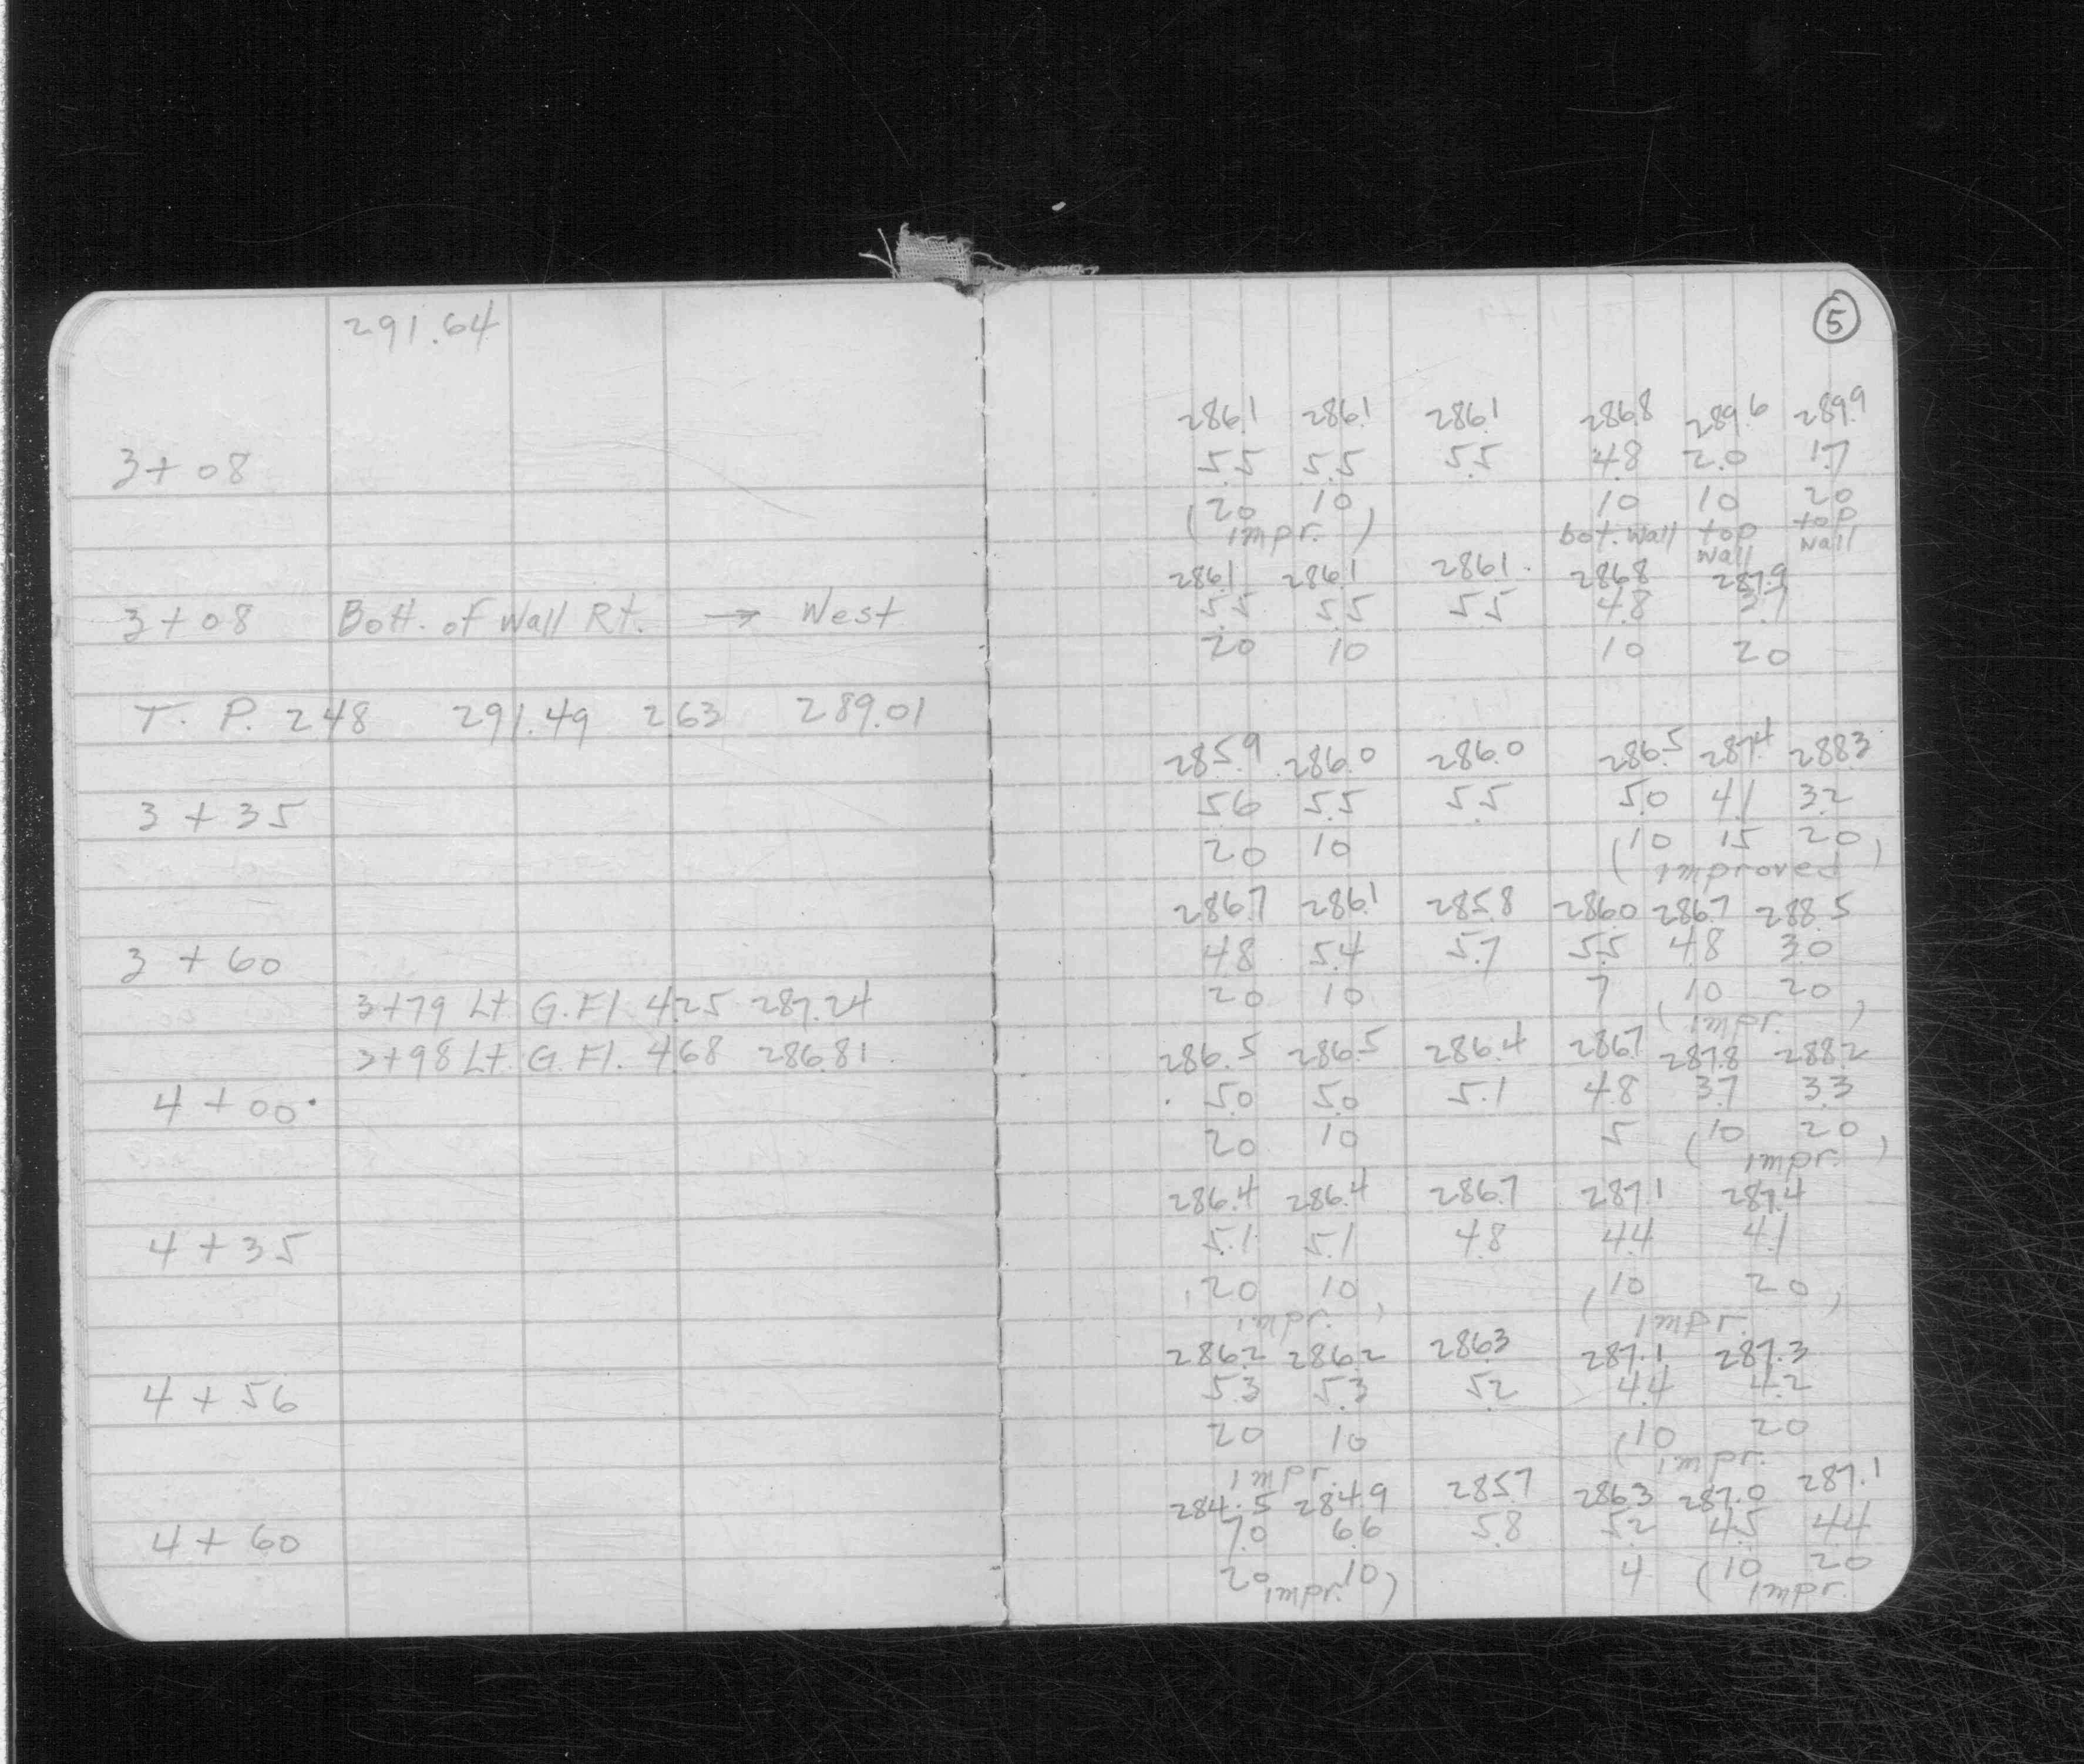 291.64
3+08
3+08 Bott. of Wall Rt. → West
T. P. 2.48 291.49 2.63 289.01
3+35
3+60
3+79 Lt. G. Fl. 4.25 287.24
3+98 Lt. G. Fl. 4.68 286.81
4+00
4+35
4+56
4+60
5
286.1 286.1 286.1 286.8 289.6 289.9
5.5 5.5 5.5 4.8 2.0 1.7
(20 10) 10 10 20
impr. bot. wall top wall top wall
286.1 286.1 286.1 286.8 287.9
5.5 5.5 5.5 4.8 3.7
20 10 10 20
285.9 286.0 286.0 286.5 287.4 288.3
5.6 5.5 5.5 5.0 4.1 3.2
20 10 (10 15 20)
improved
286.7 286.1 285.8 286.0 286.7 288.5
4.8 5.4 5.7 5.5 4.8 3.0
20 10 7 (10 20)
impr.
286.5 286.5 286.4 286.7 287.8 288.2
5.0 5.0 5.1 4.8 3.7 3.3
20 10 5 (10 20)
impr.
286.4 286.4 286.7 287.1 287.4
5.1 5.1 4.8 4.4 4.1
(20 10) (10 20)
impr. impr.
286.2 286.2 286.3 287.1 287.3
5.3 5.3 5.2 4.4 4.2
20 10 (10 20
impr. impr.
284.5 284.9 285.7 286.3 287.0 287.1
7.0 6.6 5.8 5.2 4.5 4.4
20 10) 4 (10 20
impr. impr.